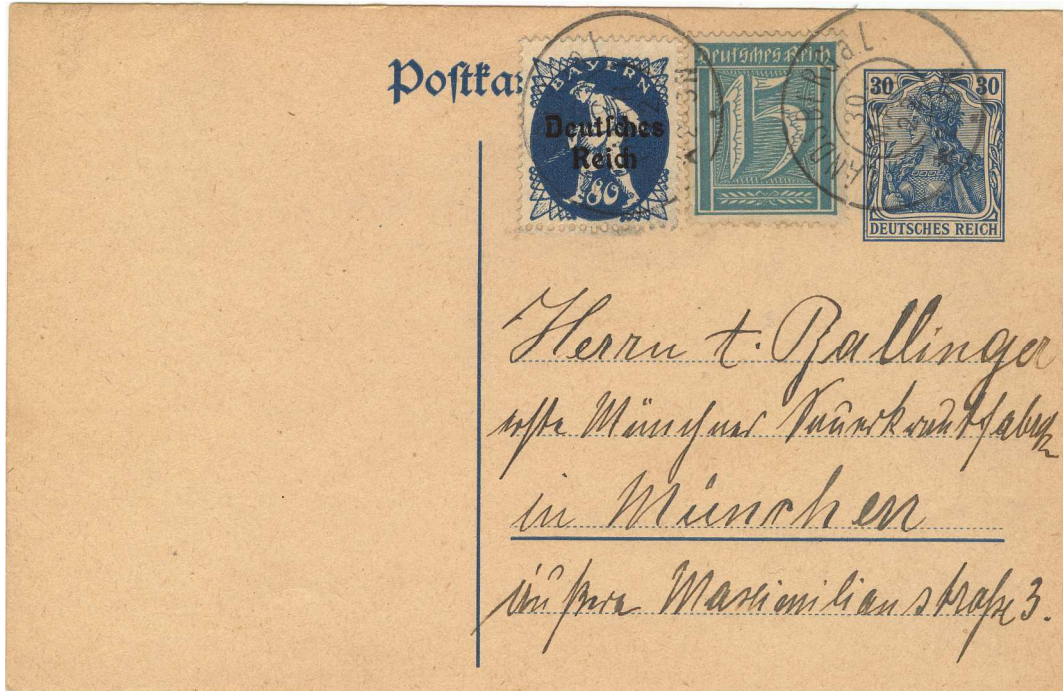 Postkar
BAYERN
Deutsches
Reich
80
Deutsches Reich
15
30 30
DEUTSCHES REICH
Herrn A. Ballinger
erste Münchner Sauerkrautfabrik
in München
äußere Maximilianstraße 3.